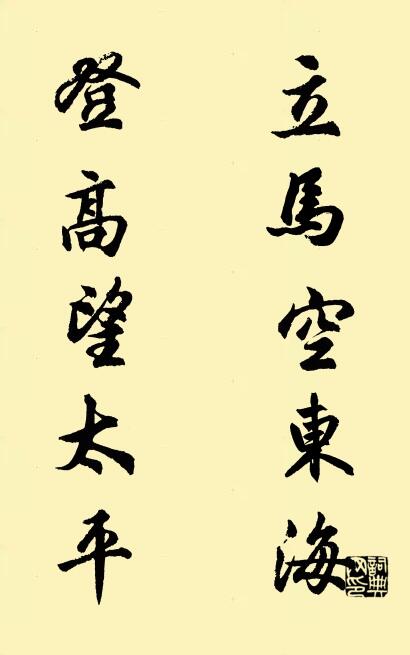 立馬空東海
登高望太平